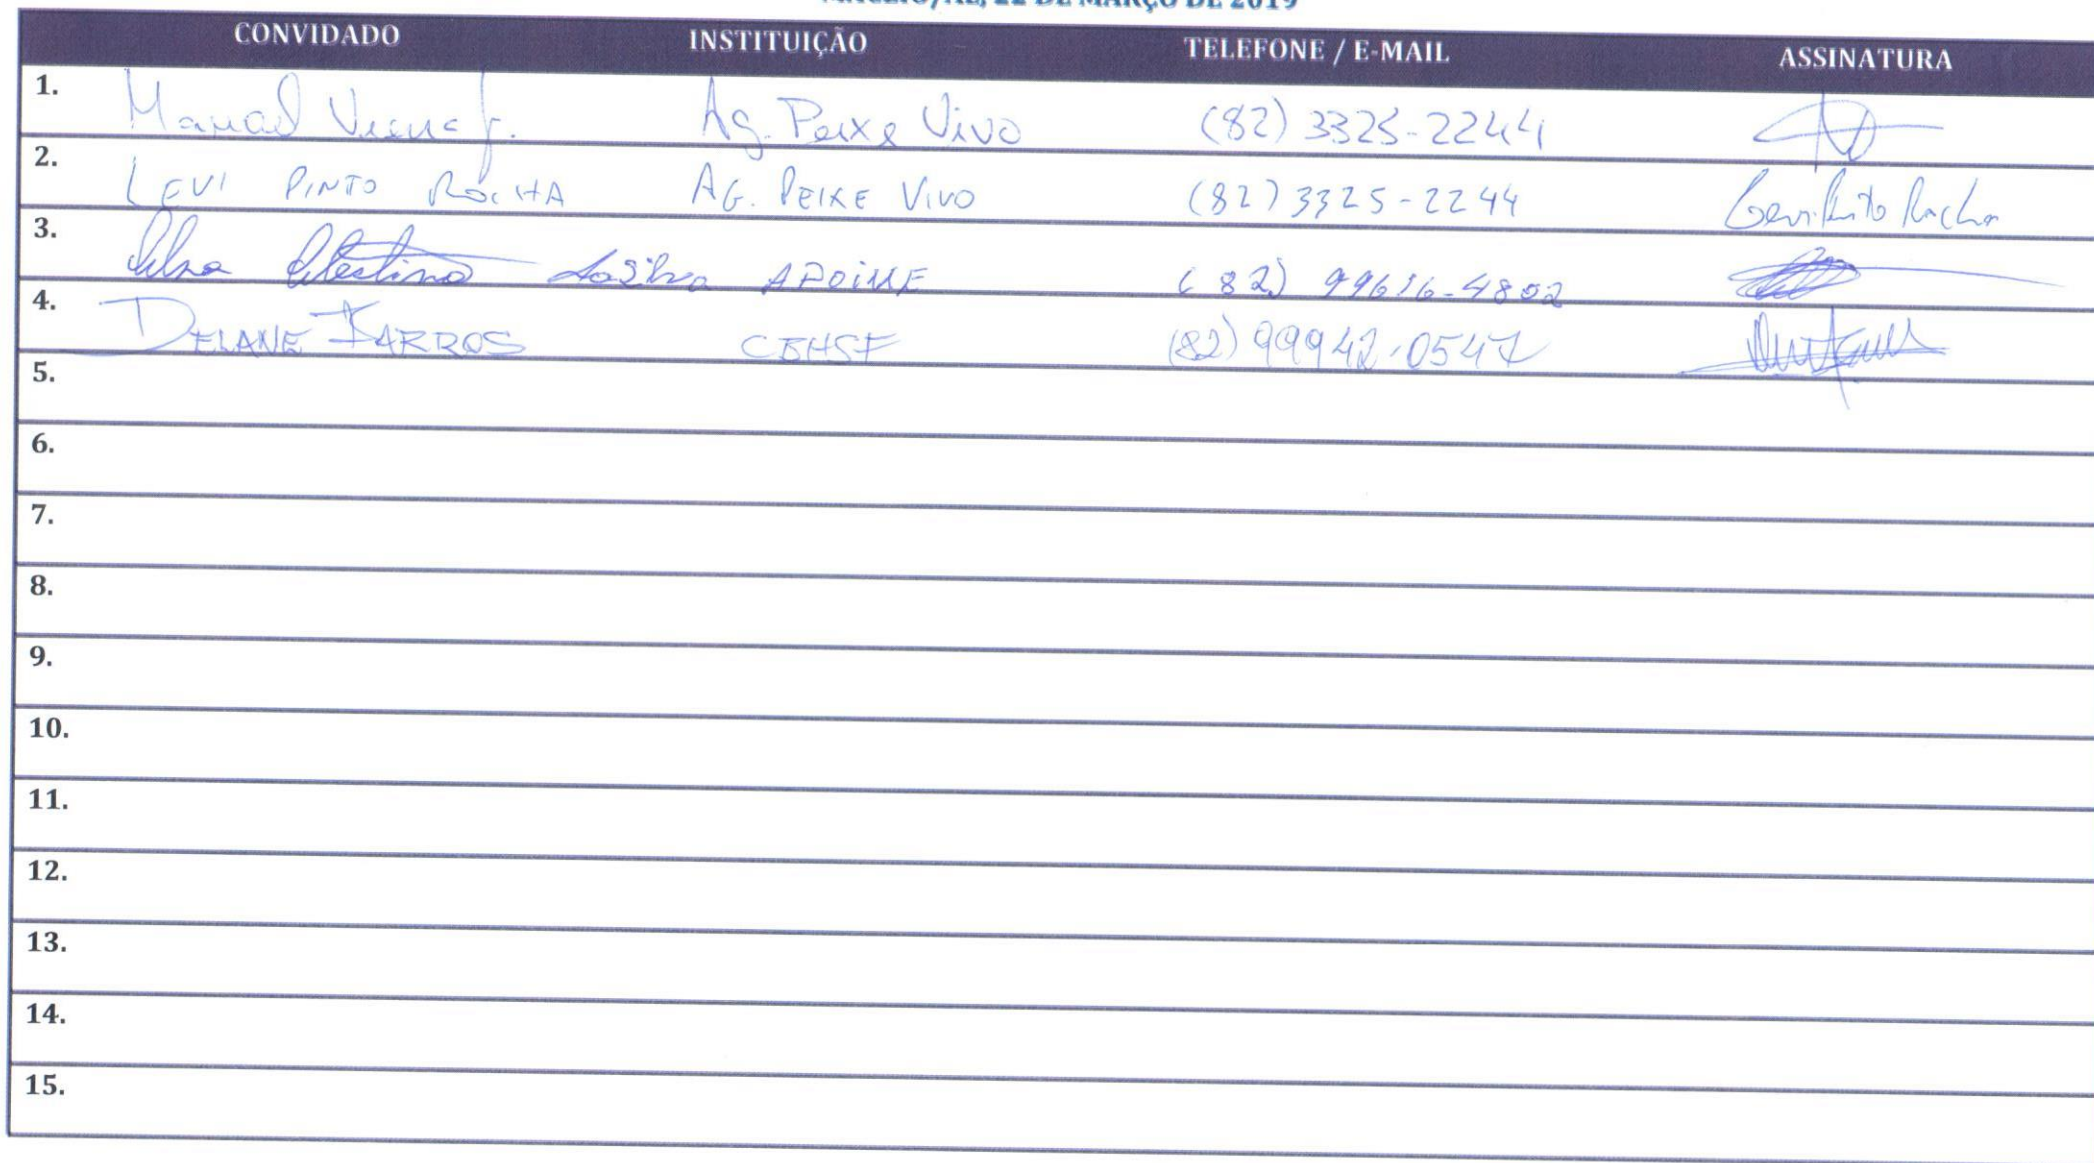 MACEIÓ/AL, 22 DE MARÇO DE 2019
CONVIDADO INSTITUIÇÃO TELEFONE / E-MAIL ASSINATURA
1. Manoel Vieira Jr. Ag. Peixe Vivo (82) 3325-2244
2. LEVI PINTO ROCHA AG. PEIXE VIVO (82) 3325-2244 Levi Pinto Rocha
3. Celestino da Silva APOINME (82) 99616-4802
4. DELANE BARROS CBHSF (82) 99942-0547
5.
6.
7.
8.
9.
10.
11.
12.
13.
14.
15.